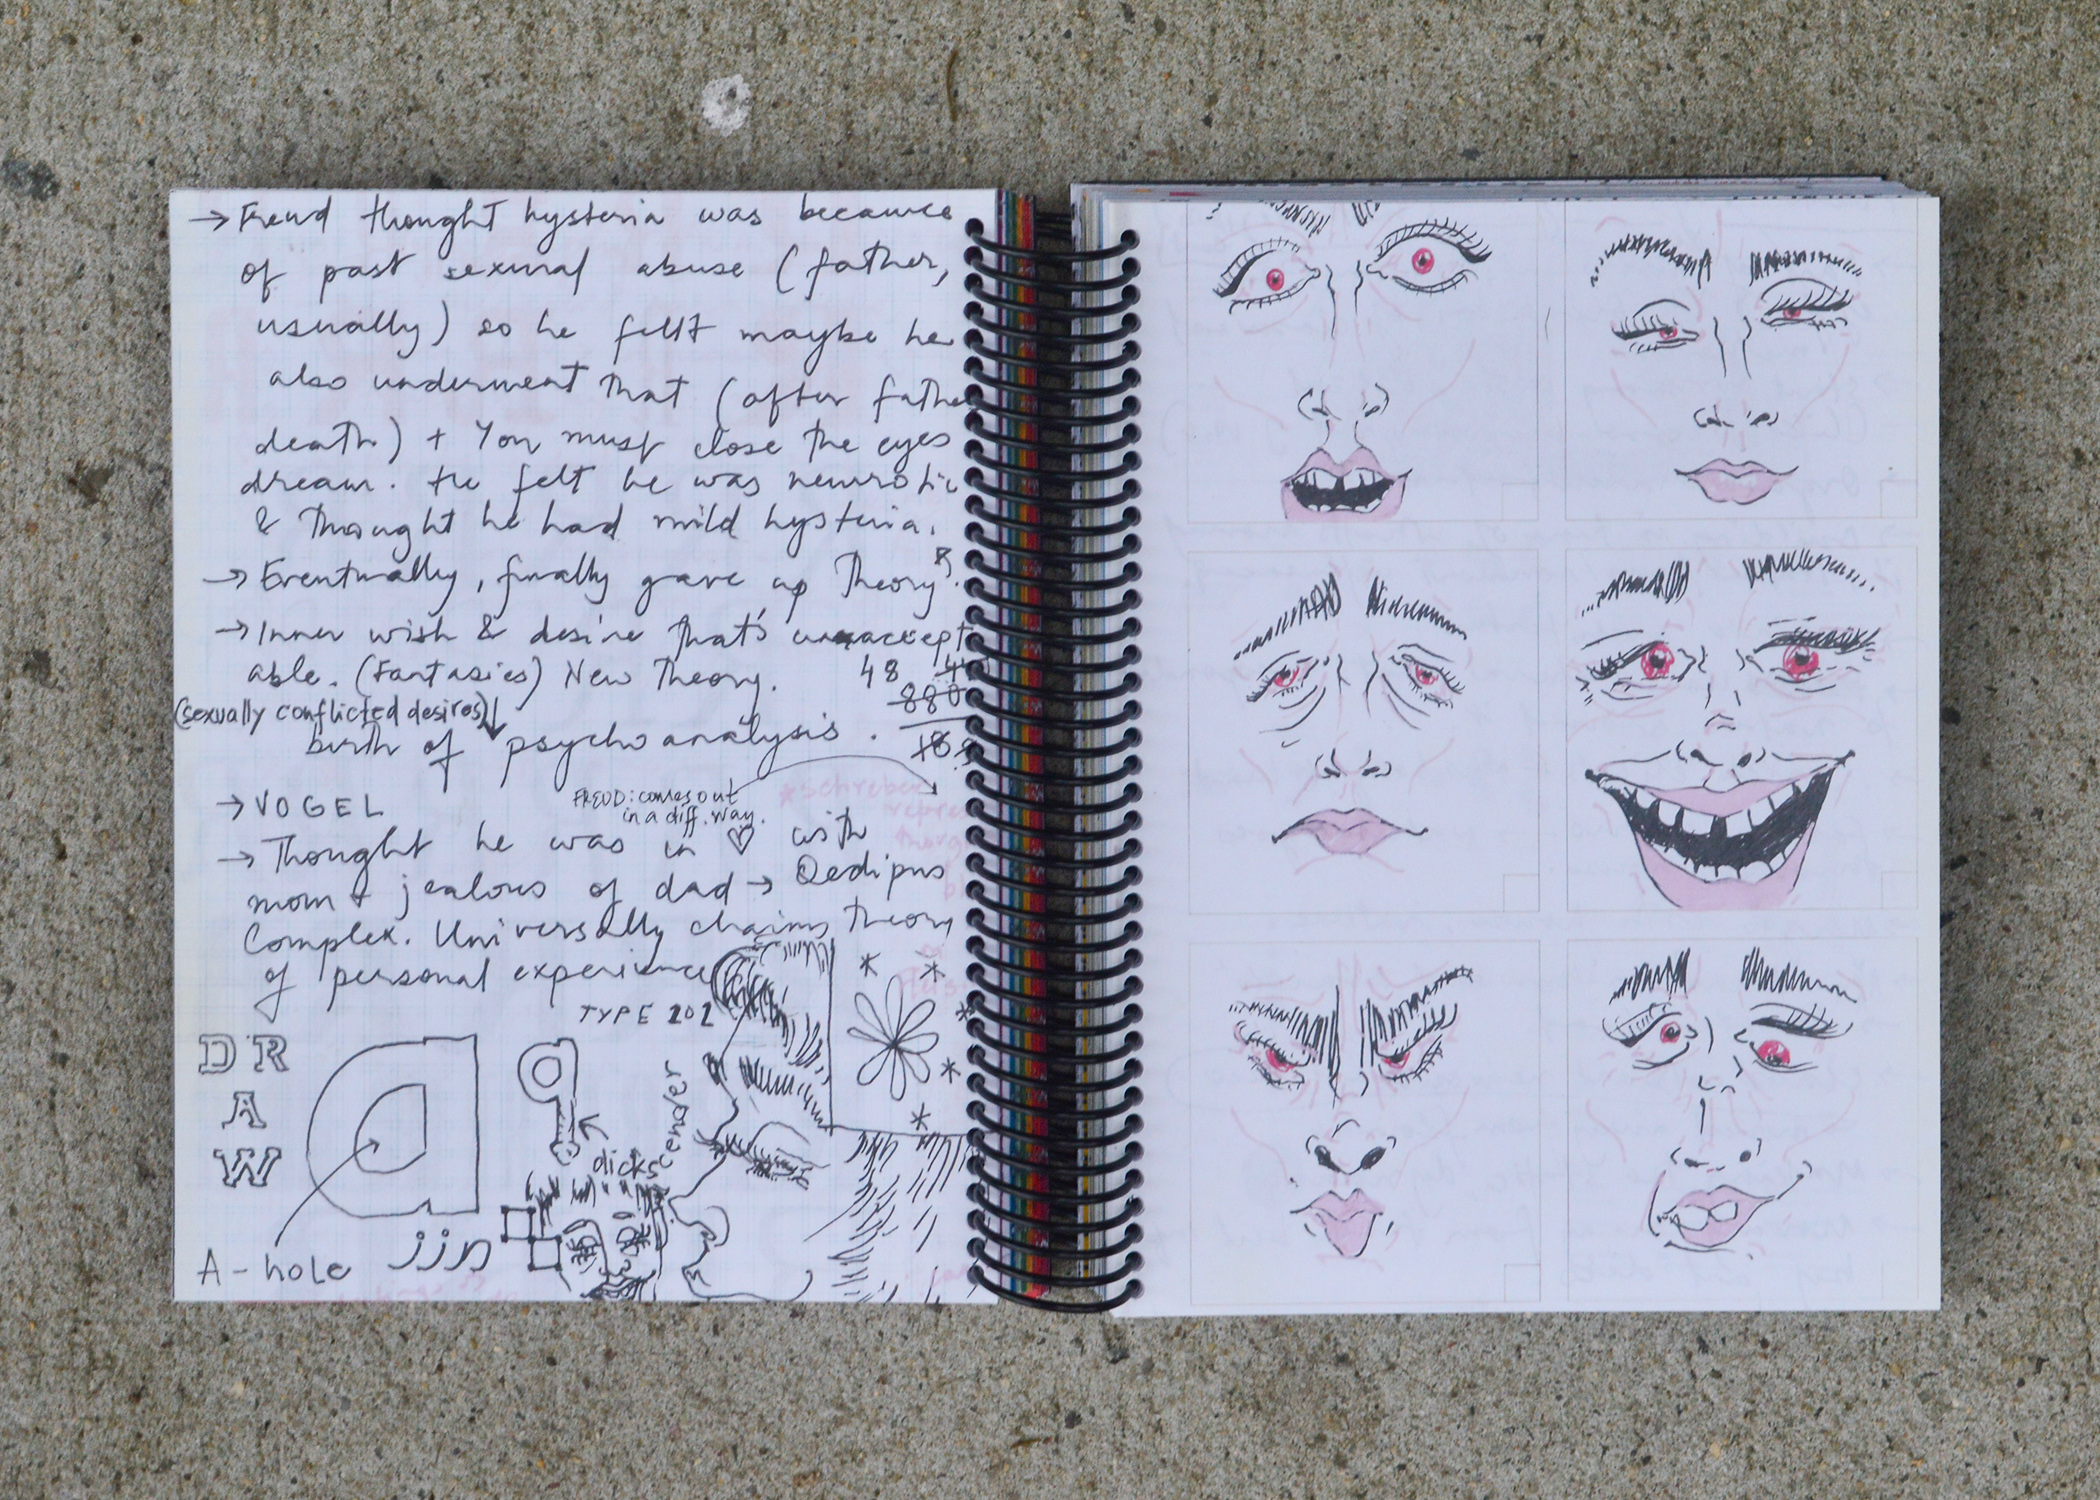 → Freud thought hysteria was because
of past sexural abuse (father,
usually) so he fellt maybe he
also underwent that (after fathe
death) + You must close the eyes
dream. He felt he was neurotic
& thought he had mild hysteria.
→ Eventually, finally gave up Theory.
→ Inner wish & desire that's unaccept
able. (Fantasies) New Theory.
48
880
(sexually conflicted desires)
birth of psychoanalysis.
→ VOGEL
FREUD: comes out
in a diff. way.
*schreber
repres
→ Thought he was in ♡ with
mom & jealous of dad → Oedipus
Complex. Universally claims theory
of personal experience
TYPE 202
DR
A
W
a
a
dicks
cender
A-hole
jjn